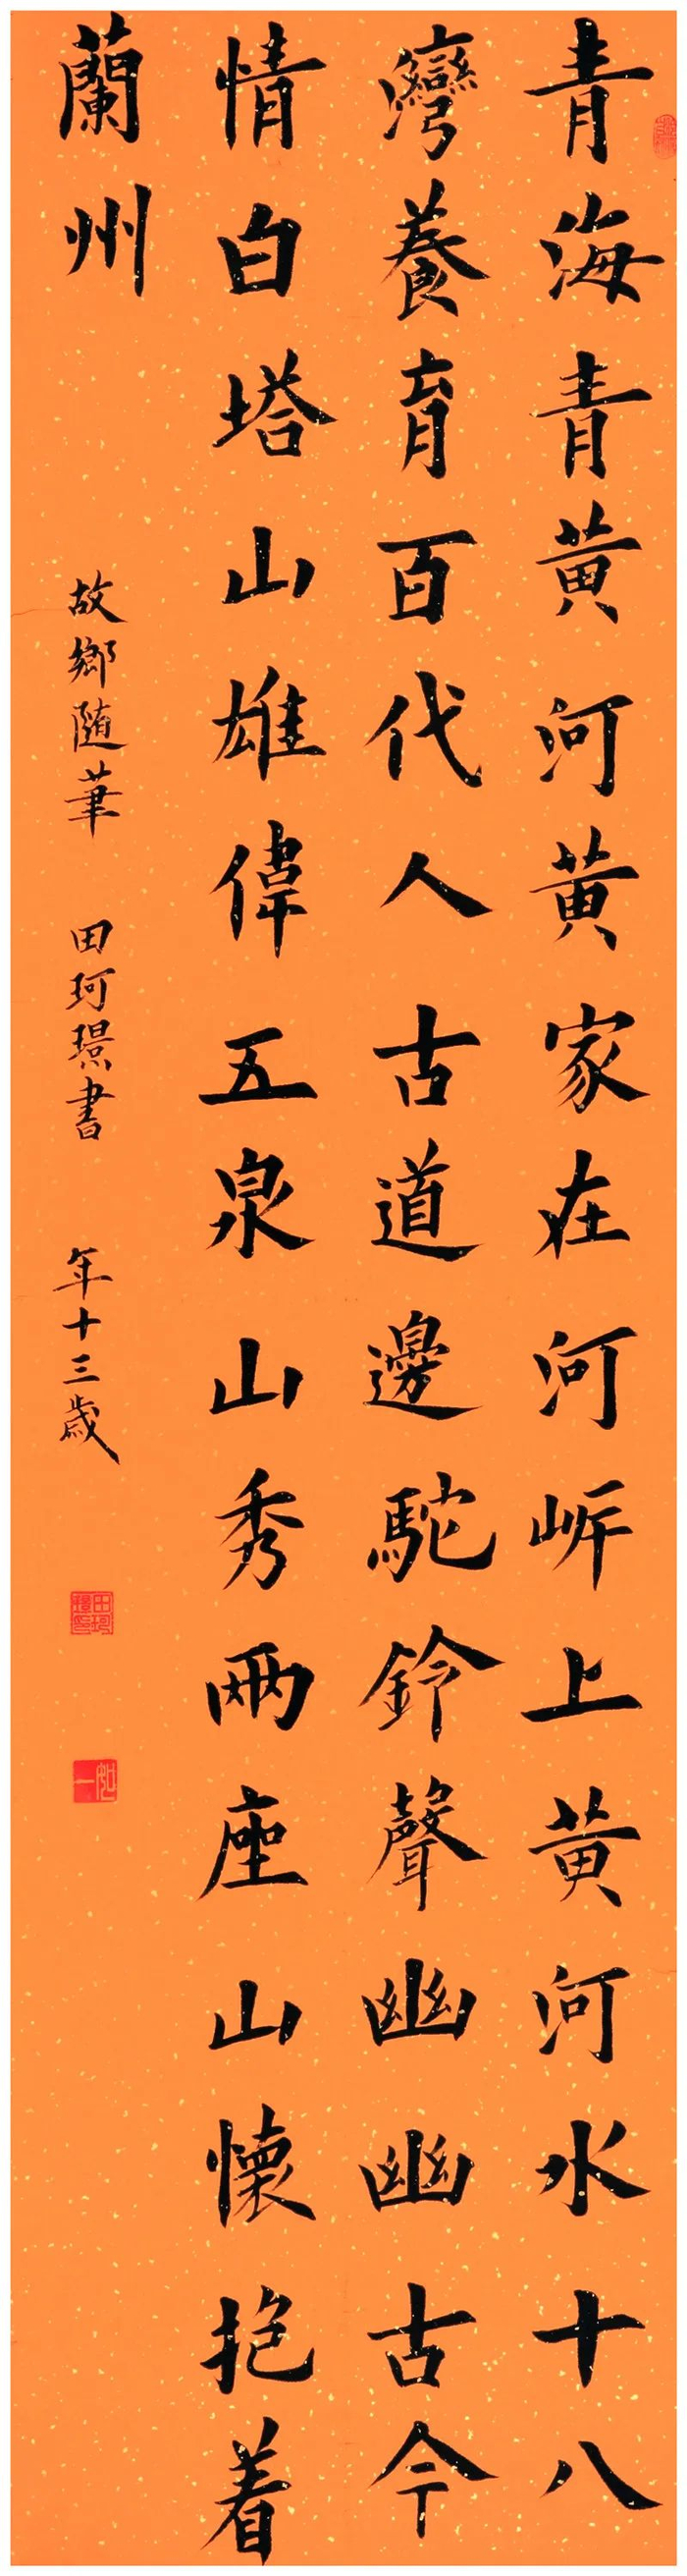 青海青黄河黄家在河岸上黄河水十八
灣養育百代人古道邊駝鈴聲幽幽古今
情白塔山雄偉五泉山秀兩座山懷抱着
蘭州
故鄉随筆 田珂璟書 年十三歲
田珂璟印
如一